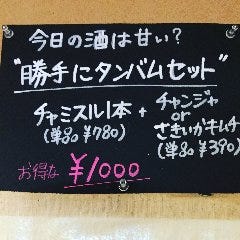 今日の酒は甘い?
"勝手にタンバムセット"
チャミスル1本 + チャンジャ
or
さきいかキムチ
(単品¥780)
(単品¥390)
お得な ¥1000